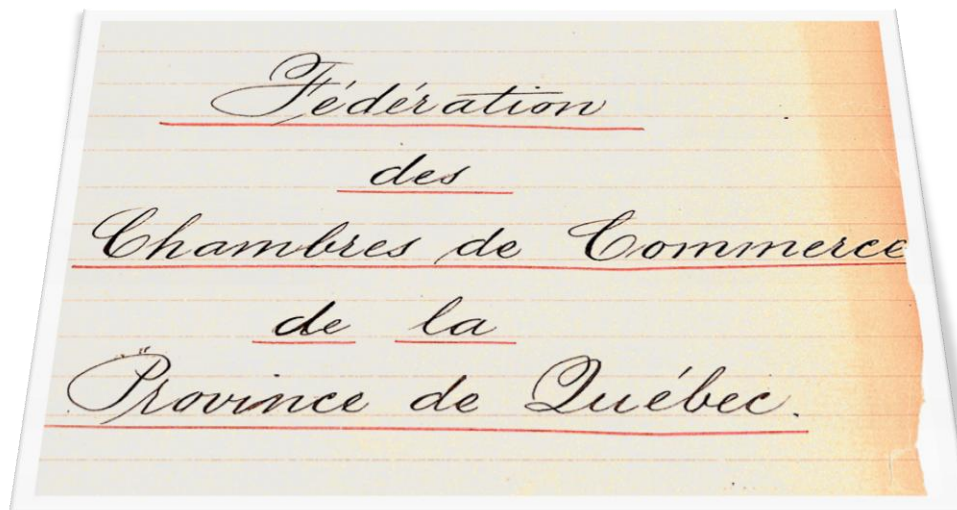 Fédération
des
Chambres de Commerce
de la
Province de Québec.